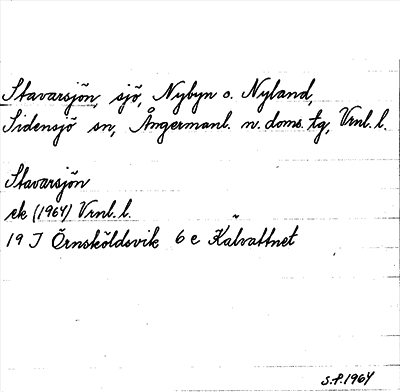 Stavarsjön, sjö, Nybyn o. Nyland,
Sidensjö sn, Ångermanl. n. doms. tg, Vrnl. l.
Stavarsjön
ek (1964) Vrnl. l.
19 J Örnsköldsvik 6 e Kälvattnet
S.P. 1964